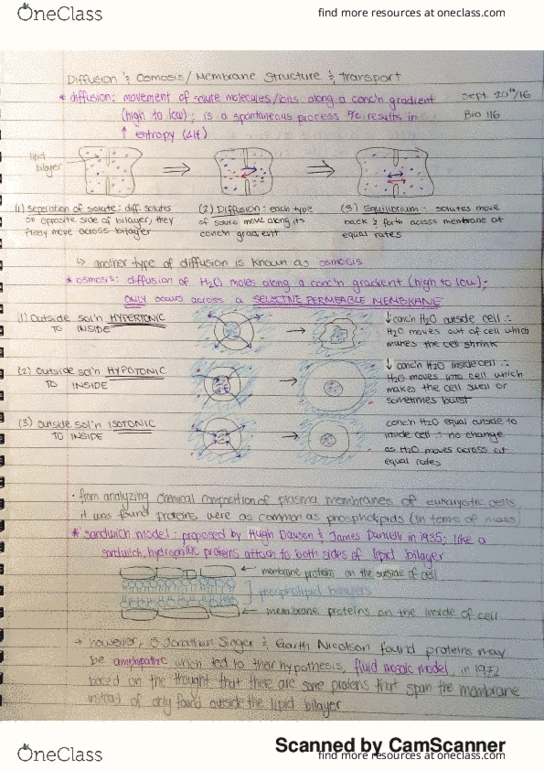 OneClass
find more resources at oneclass.com
Diffusion & Osmosis / Membrane Structure & Transport
* diffusion: movement of solute molecules/ions along a conc'n gradient
Sept 20th/16
(high to low); is a spontaneous process b/c results in
Bio 116
↑ entropy (ΔH)
lipid
bilayer
(1) Seperation of solute: diff. solutes
on opposite side of bilayer, they
freely move across bilayer
(2) Diffusion: each type
of solute move along its
conc'n gradient
(3) Equilibrium: solutes move
back & forth across membrane at
equal rates
↳ another type of diffusion is known as osmosis
* osmosis: diffusion of H2O moles along a conc'n gradient (high to low);
ONLY occurs across a SELECTIVE PERMEABLE MEMBRANE
(1) Outside sol'n HYPERTONIC
TO INSIDE
↓ conc'n H2O outside cell ∴
H2O moves out of cell which
makes the cell shrink
(2) Outside sol'n HYPOTONIC
TO INSIDE
↓ conc'n H2O inside cell ∴
H2O moves into cell which
makes the cell swell or
sometimes burst
(3) Outside sol'n ISOTONIC
TO INSIDE
conc'n H2O equal outside to
inside cell ∴ no change
as H2O moves across at
equal rates
· from analyzing chemical composition of plasma membranes of eukaryotic cells,
it was found proteins were as common as phospholipids (in terms of mass)
* sandwich model: proposed by Hugh Davson & James Danielli in 1935; like a
sandwich, hydrophilic proteins attach to both sides of lipid bilayer
membrane proteins on the outside of cell
phospholipid bilayers
membrane proteins on the inside of cell
→ however, S. Jonathan Singer & Garth Nicolson found proteins may
be amphipathic which led to their hypothesis, fluid mosaic model, in 1972
based on the thought that there are some proteins that span the membrane
instead of only found outside the lipid bilayer
Scanned by CamScanner
OneClass
find more resources at oneclass.com